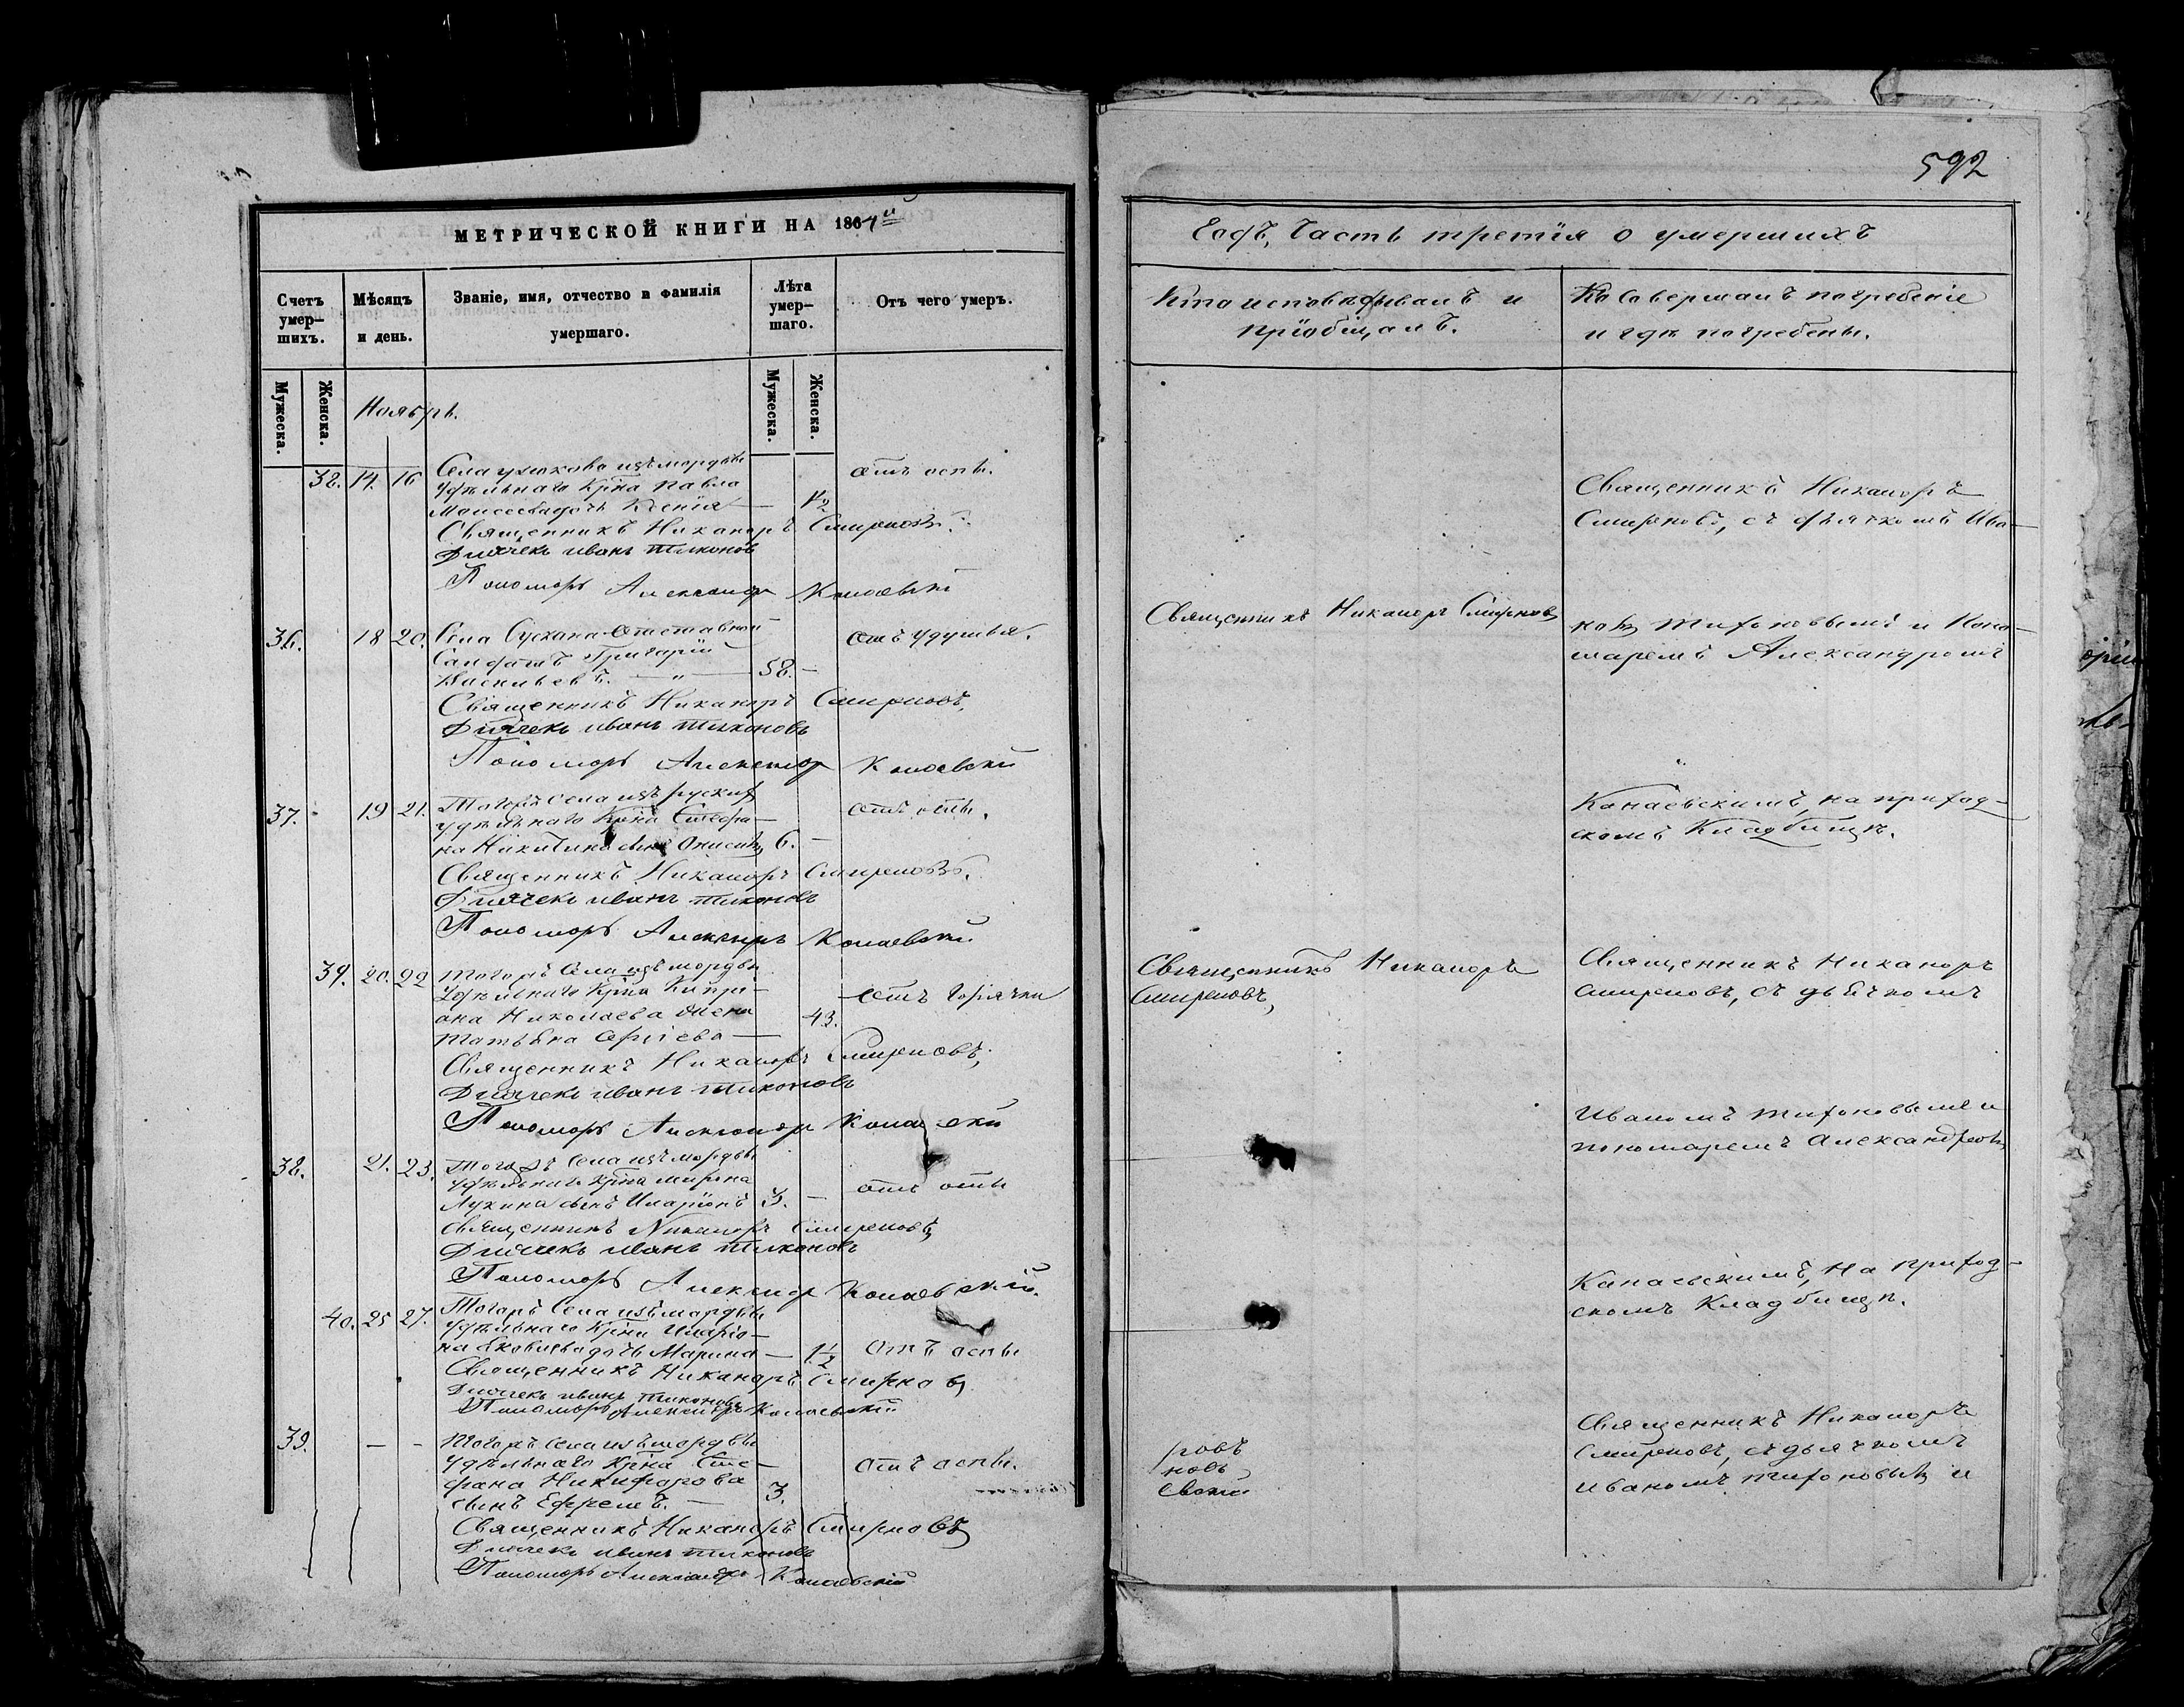 МЕТРИЧЕСКОЙ КНИГИ НА 1867й
Счетъ умер-шихъ.
Мѣсяцъ и день.
Званіе, имя, отчество и фамилія умершаго.
Лѣта умер-шаго.
Отъ чего умеръ.
Мужеска.
Женска.
Мужеска.
Женска.
Ноябрь.
38. 14. 16 Села изъ мордвы
Удѣльнаго Крна Павла отъ оспы.
дочь Ксенія — ½
Священникъ Никаноръ Смирновъ.
Дьячекъ иванъ тихоновъ
Пономоръ Александръ Канаевскій
36. 18 20. Села Сускана Отставной отъ удушья.
Салдатъ Григорій
Васильевъ. — „ — 58. —
Священникъ Никаноръ Смирновъ,
Дьячекъ иванъ тихоновъ
Пономоръ Александръ Канаевскій
37. 19 21. Тогожъ села изъ рускихъ
удѣльнаго Крна Стефа- отъ оспы.
на Никитина сынъ Онисимъ 6. —
Священникъ Никаноръ Смирновъ.
Дьячекъ иванъ тихоновъ
Пономоръ Александръ Канаевскій
39. 20. 22 Тогожъ Села изъ мордвы
Удѣльнаго Крна Кипри- отъ горячки
ана Николаева жена 43.
Татьяна Сергіева —
Священникъ Никаноръ Смирновъ,
Дьячекъ иванъ тихоновъ
Пономоръ Александръ Канаевскій
38. 21. 23. Тогожъ Села изъ мордвы
Удѣльнаго Крна Мирона отъ оспы
Лукина сынъ Иларіонъ 3. —
Священникъ Никаноръ Смирновъ
Дьячекъ иванъ тихоновъ
Пономоръ Александръ Канаевскій.
40. 25 27. Тогожъ Села изъ мордвы
Удѣльнаго Крна Иларіо-
на Яковлева дочь Марина — 1½ отъ оспы
Священникъ Никаноръ Смирновъ
Дьячекъ иванъ тихоновъ
Пономоръ Александръ Канаевскій
39. — - Тогожъ Села изъ мордвы
Удѣльнаго Крна Сте- отъ оспы.
фана Никифорова
сынъ Ефремъ. — 3.
Священникъ Никаноръ Смирновъ
Дьячекъ иванъ тихоновъ
Пономоръ Александръ Канаевскій
592
Годъ, Часть третія о умершихъ
Кто исповѣдывалъ и пріобщалъ.
Ко совершалъ погребеніе и гдѣ погребены.
Священникъ Никаноръ
Смирновъ, съ дьячкомъ Ива-
Священникъ Никаноръ Смирновъ
номъ Тихоновымъ и Поно-
маремъ Александромъ
Канаевскимъ, на приход-
скомъ Кладбищѣ.
Священникъ Никаноръ
Смирновъ,
Священникъ Никаноръ
Смирновъ, съ дьячкомъ
Иваномъ тихоновымъ и
пономаремъ Александромъ
Канаевскимъ, на приход-
скомъ Кладбищѣ.
Священникъ Никаноръ
Смирновъ, съ дьячкомъ
иваномъ тихоновымъ и
новъ